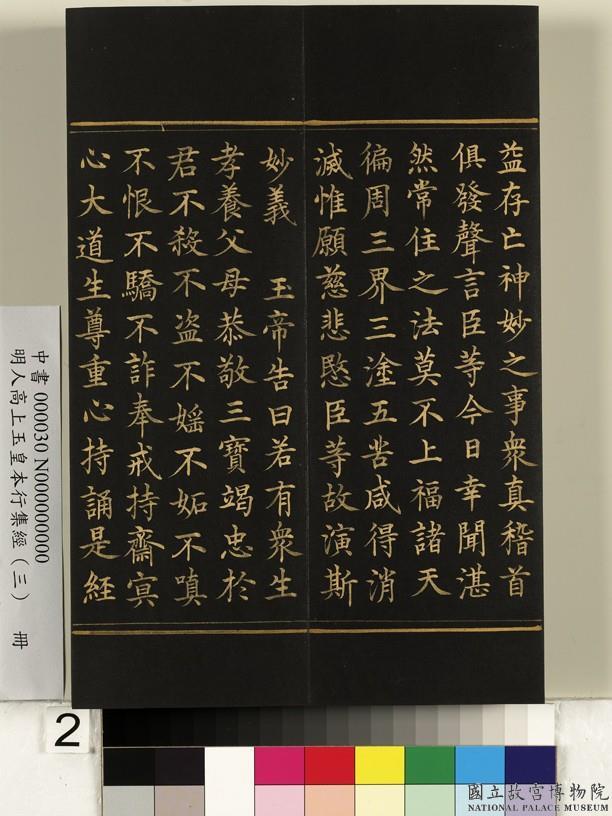 益存亡神妙之事衆真稽首
俱發聲言臣等今日幸聞湛
然常住之法莫不上福諸天
徧周三界三塗五苦咸得消
滅惟願慈悲愍臣等故演斯
妙義　玉帝告曰若有衆生
孝養父母恭敬三寳竭忠於
君不殺不盗不婬不妬不嗔
不恨不驕不詐奉戒持齋冥
心大道生尊重心持誦是経
中書 000030 N000000000
明人高上玉皇本行集經（三） 冊
2
國立故宮博物院
NATIONAL PALACE MUSEUM